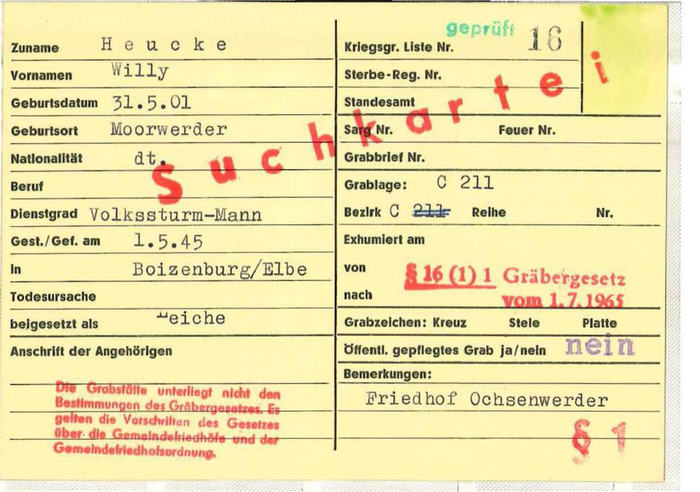 Zuname Heucke
Vornamen Willy
Geburtsdatum 31.5.01
Geburtsort Moorwerder
Nationalität dt.
Beruf
Dienstgrad Volkssturm-Mann
Gest./Gef. am 1.5.45
in Boizenburg/Elbe
Todesursache
beigesetzt als Leiche
Anschrift der Angehörigen
Die Grabstätte unterliegt nicht den
Bestimmungen des Gräbergesetzes. Es
gelten die Vorschriften des Gesetzes
über die Gemeindefriedhöfe und der
Gemeindefriedhofsordnung.
Suchkartei
geprüft
Kriegsgr. Liste Nr. 16
Sterbe-Reg. Nr.
Standesamt
Sarg Nr. Feuer Nr.
Grabbrief Nr.
Grablage: C 211
Bezirk C 211 Reihe Nr.
Exhumiert am
von
§ 16 (1) 1 Gräbergesetz
nach
vom 1.7.1965
Grabzeichen: Kreuz Stele Platte
Öffentl. gepflegtes Grab ja/nein nein
Bemerkungen:
Friedhof Ochsenwerder
§ 1